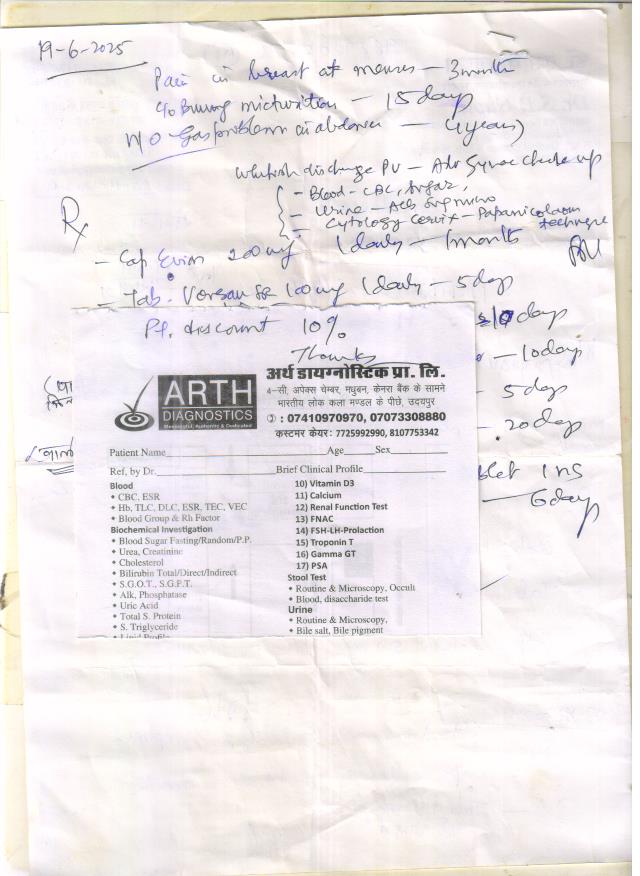 19-6-2025
Pain in breast at menses — 3 month
c/o Burning micturition — 15 day
H/O Gas problem in abdomen — (4 years)
Whitish discharge PV — Adv Gynae check up
Rx
- Blood - CBC, Sugar,
- Urine - Alb Sug micro
- Cytology Cervix - Papanicolaou technique
- Cap Evion 200 mg 1 daily — 1 month
- Tab. 100 mg 1 daily — 5 day
10 day
— 10 day
- 5 day
- 20 day
1 HS
— 6 day
Pt. discount 10%
Thanks
ARTH
DIAGNOSTICS
Meaningful, Authentic & Dedicated
अर्थ डायग्नोस्टिक प्रा. लि.
4-सी, अपेक्स चेम्बर, मधुबन, केनरा बैंक के सामने
भारतीय लोक कला मण्डल के पीछे, उदयपुर
: 07410970970, 07073308880
कस्टमर केयर: 7725992990, 8107753342
Patient Name Age Sex
Ref, by Dr. Brief Clinical Profile
Blood
• CBC, ESR
• Hb, TLC, DLC, ESR, TEC, VEC
• Blood Group & Rh Factor
Biochemical Investigation
• Blood Sugar Fasting/Random/P.P.
• Urea, Creatinine
• Cholesterol
• Bilirubin Total/Direct/Indirect
• S.G.O.T., S.G.P.T.
• Alk, Phosphatase
• Uric Acid
• Total S. Protein
• S. Triglyceride
• Lipid Profile
10) Vitamin D3
11) Calcium
12) Renal Function Test
13) FNAC
14) FSH-LH-Prolaction
15) Troponin T
16) Gamma GT
17) PSA
Stool Test
• Routine & Microscopy, Occult
• Blood, disaccharide test
Urine
• Routine & Microscopy,
• Bile salt, Bile pigment